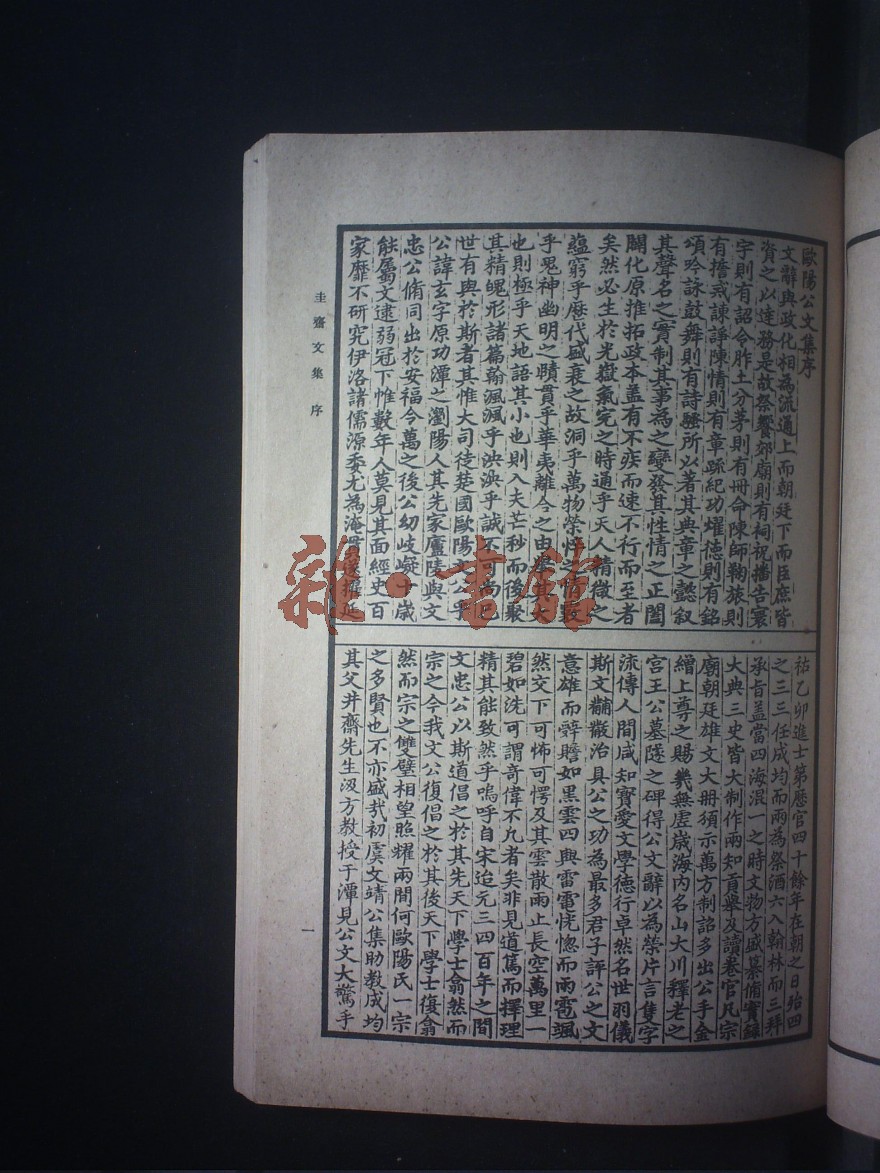 歐陽公文集序
文辭與政化相為流通上而朝廷下而臣庶皆
資之以達務是故祭饗郊廟則有祠祝播告寰
宇則有詔令胙土分茅則有冊命陳師鞠旅則
有誓戒諫諍陳情則有章疏紀功耀德則有銘
頌吟詠鼓舞則有詩騷所以著其典章之懿叙
其聲名之實制其事為之變發其性情之正闔
闢化原推拓政本蓋有不疾而速不行而至者
矣然必生於光嶽氣完之時通乎天人精微之
蘊窮乎歷代盛衰之故洞乎萬物榮悴之情
乎鬼神幽明之賾貫乎華夷離合之由
也則極乎天地語其小也則入夫芒秒而後聚
其精魄形諸篇翰渢渢乎泱泱乎誠不可尚已
世有與於斯者其惟大司徒楚國歐陽文公乎
公諱玄字原功潭之瀏陽人其先家廬陵與文
忠公脩同出於安福令萬之後公幼岐嶷十歲
能屬文逮弱冠下帷數年人莫見其面經史百
家靡不研究伊洛諸儒源委尤為淹貫
祐乙卯進士第歷官四十餘年在朝之日殆四
之三三任成均而兩為祭酒六入翰林而三拜
承旨蓋當四海混一之時文物方盛纂脩實錄
大典三史皆大制作兩知貢舉及讀卷官凡宗
廟朝廷雄文大册須示萬方制詔多出公手金
繒上尊之賜幾無虛歲海內名山大川釋老之
宮王公墓隧之碑得公文辭以為榮片言隻字
流傳人間咸知寶愛文學德行卓然名世羽儀
斯文黼黻治具公之功為最多君子評公之文
意雄而辭贍如黑雲四興雷電恍惚而雨雹颯
然交下可怖可愕及其雲散雨止長空萬里一
碧如洗可謂奇偉不凡者矣非見道篤而擇理
精其能致然乎嗚呼自宋迨元三四百年之間
文忠公以斯道倡之於其先天下學士翕然而
宗之今我文公復倡之於其後天下學士復翕
然而宗之雙璧相望照耀兩間何歐陽氏一宗
之多賢也不亦盛哉初虞文靖公集助教成均
其父井齋先生汲方教授于潭見公文大驚手
圭齋文集 序
一
雜·書館